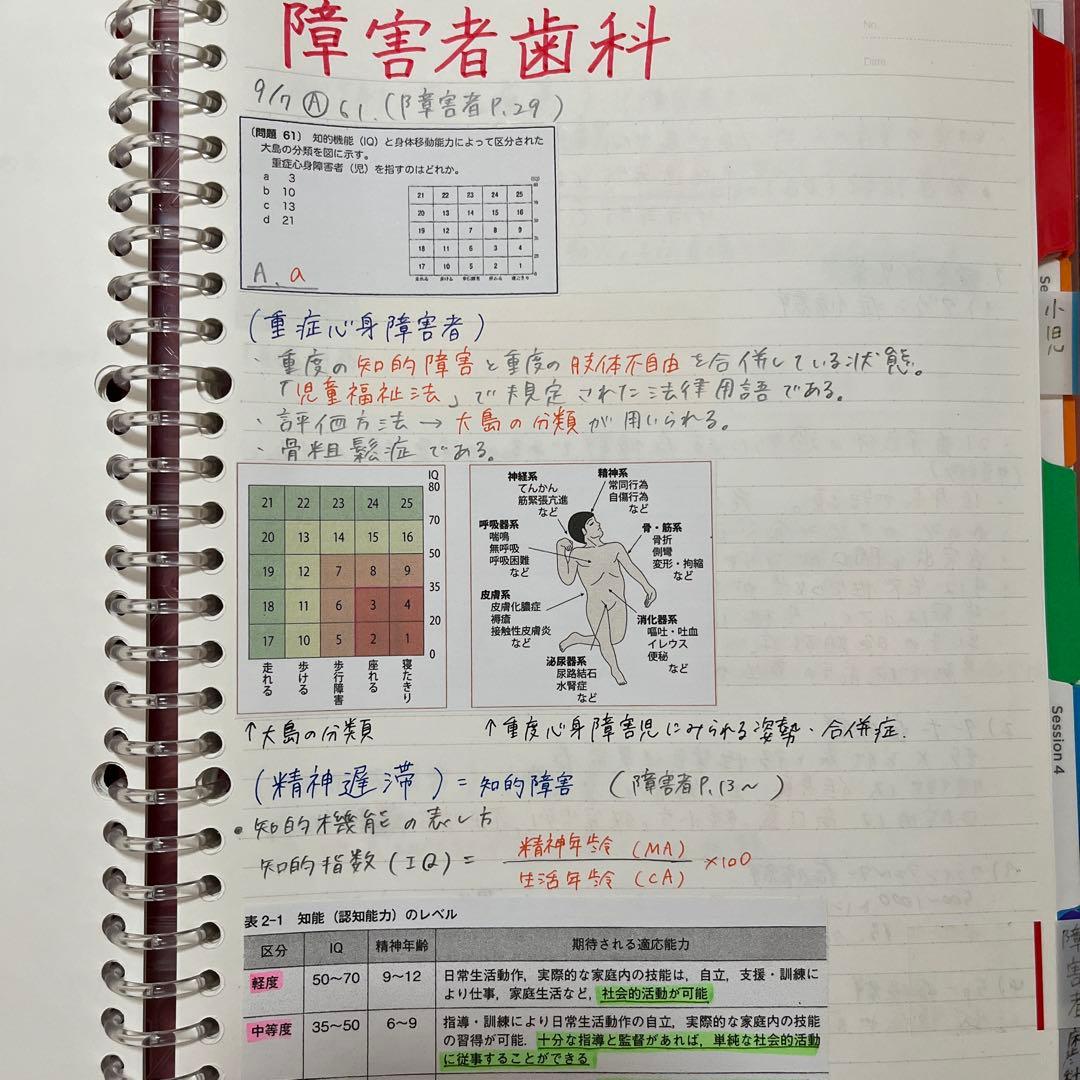 障害者歯科
No.
Date
9/7 Ⓐ 61.(障害者P.29)
〔問題 61〕 知的機能(IQ)と身体移動能力によって区分された
大島の分類を図に示す。
重症心身障害者(児)を指すのはどれか。
a 3
b 10
c 13
d 21
21 22 23 24 25
20 13 14 15 16
19 12 7 8 9
18 11 6 3 4
17 10 5 2 1
A. a
(重症心身障害者)
・重度の知的障害と重度の肢体不自由を合併している状態。
「児童福祉法」で規定された法律用語である。
・評価方法→大島の分類が用いられる。
・骨粗鬆症である。
IQ
80
21 22 23 24 25
70
20 13 14 15 16
50
19 12 7 8 9
35
18 11 6 3 4
20
17 10 5 2 1
0
走れる 歩ける 歩行障害 座れる 寝たきり
神経系
てんかん
筋緊張亢進
など
精神系
常同行為
自傷行為
など
呼吸器系
喘鳴
無呼吸
呼吸困難
など
骨・筋系
骨折
側彎
変形・拘縮
など
皮膚系
皮膚化膿症
褥瘡
接触性皮膚炎
など
消化器系
嘔吐・吐血
イレウス
便秘
など
泌尿器系
尿路結石
水腎症
など
↑大島の分類
↑重度心身障害児にみられる姿勢・合併症.
(精神遅滞)=知的障害 (障害者P.13〜)
・知的機能の表し方
知的指数(IQ)= 精神年齢(MA) ×100
生活年齢(CA)
表2-1 知能(認知能力)のレベル
区分 IQ 精神年齢 期待される適応能力
軽度 50〜70 9〜12 日常生活動作,実際的な家庭内の技能は,自立,支援・訓練に
より仕事,家庭生活など,社会的活動が可能
中等度 35〜50 6〜9 指導・訓練により日常生活動作の自立,実際的な家庭内の技能
の習得が可能.十分な指導と監督があれば,単純な社会的活動
に従事することができる
小児
Session 4
障害者